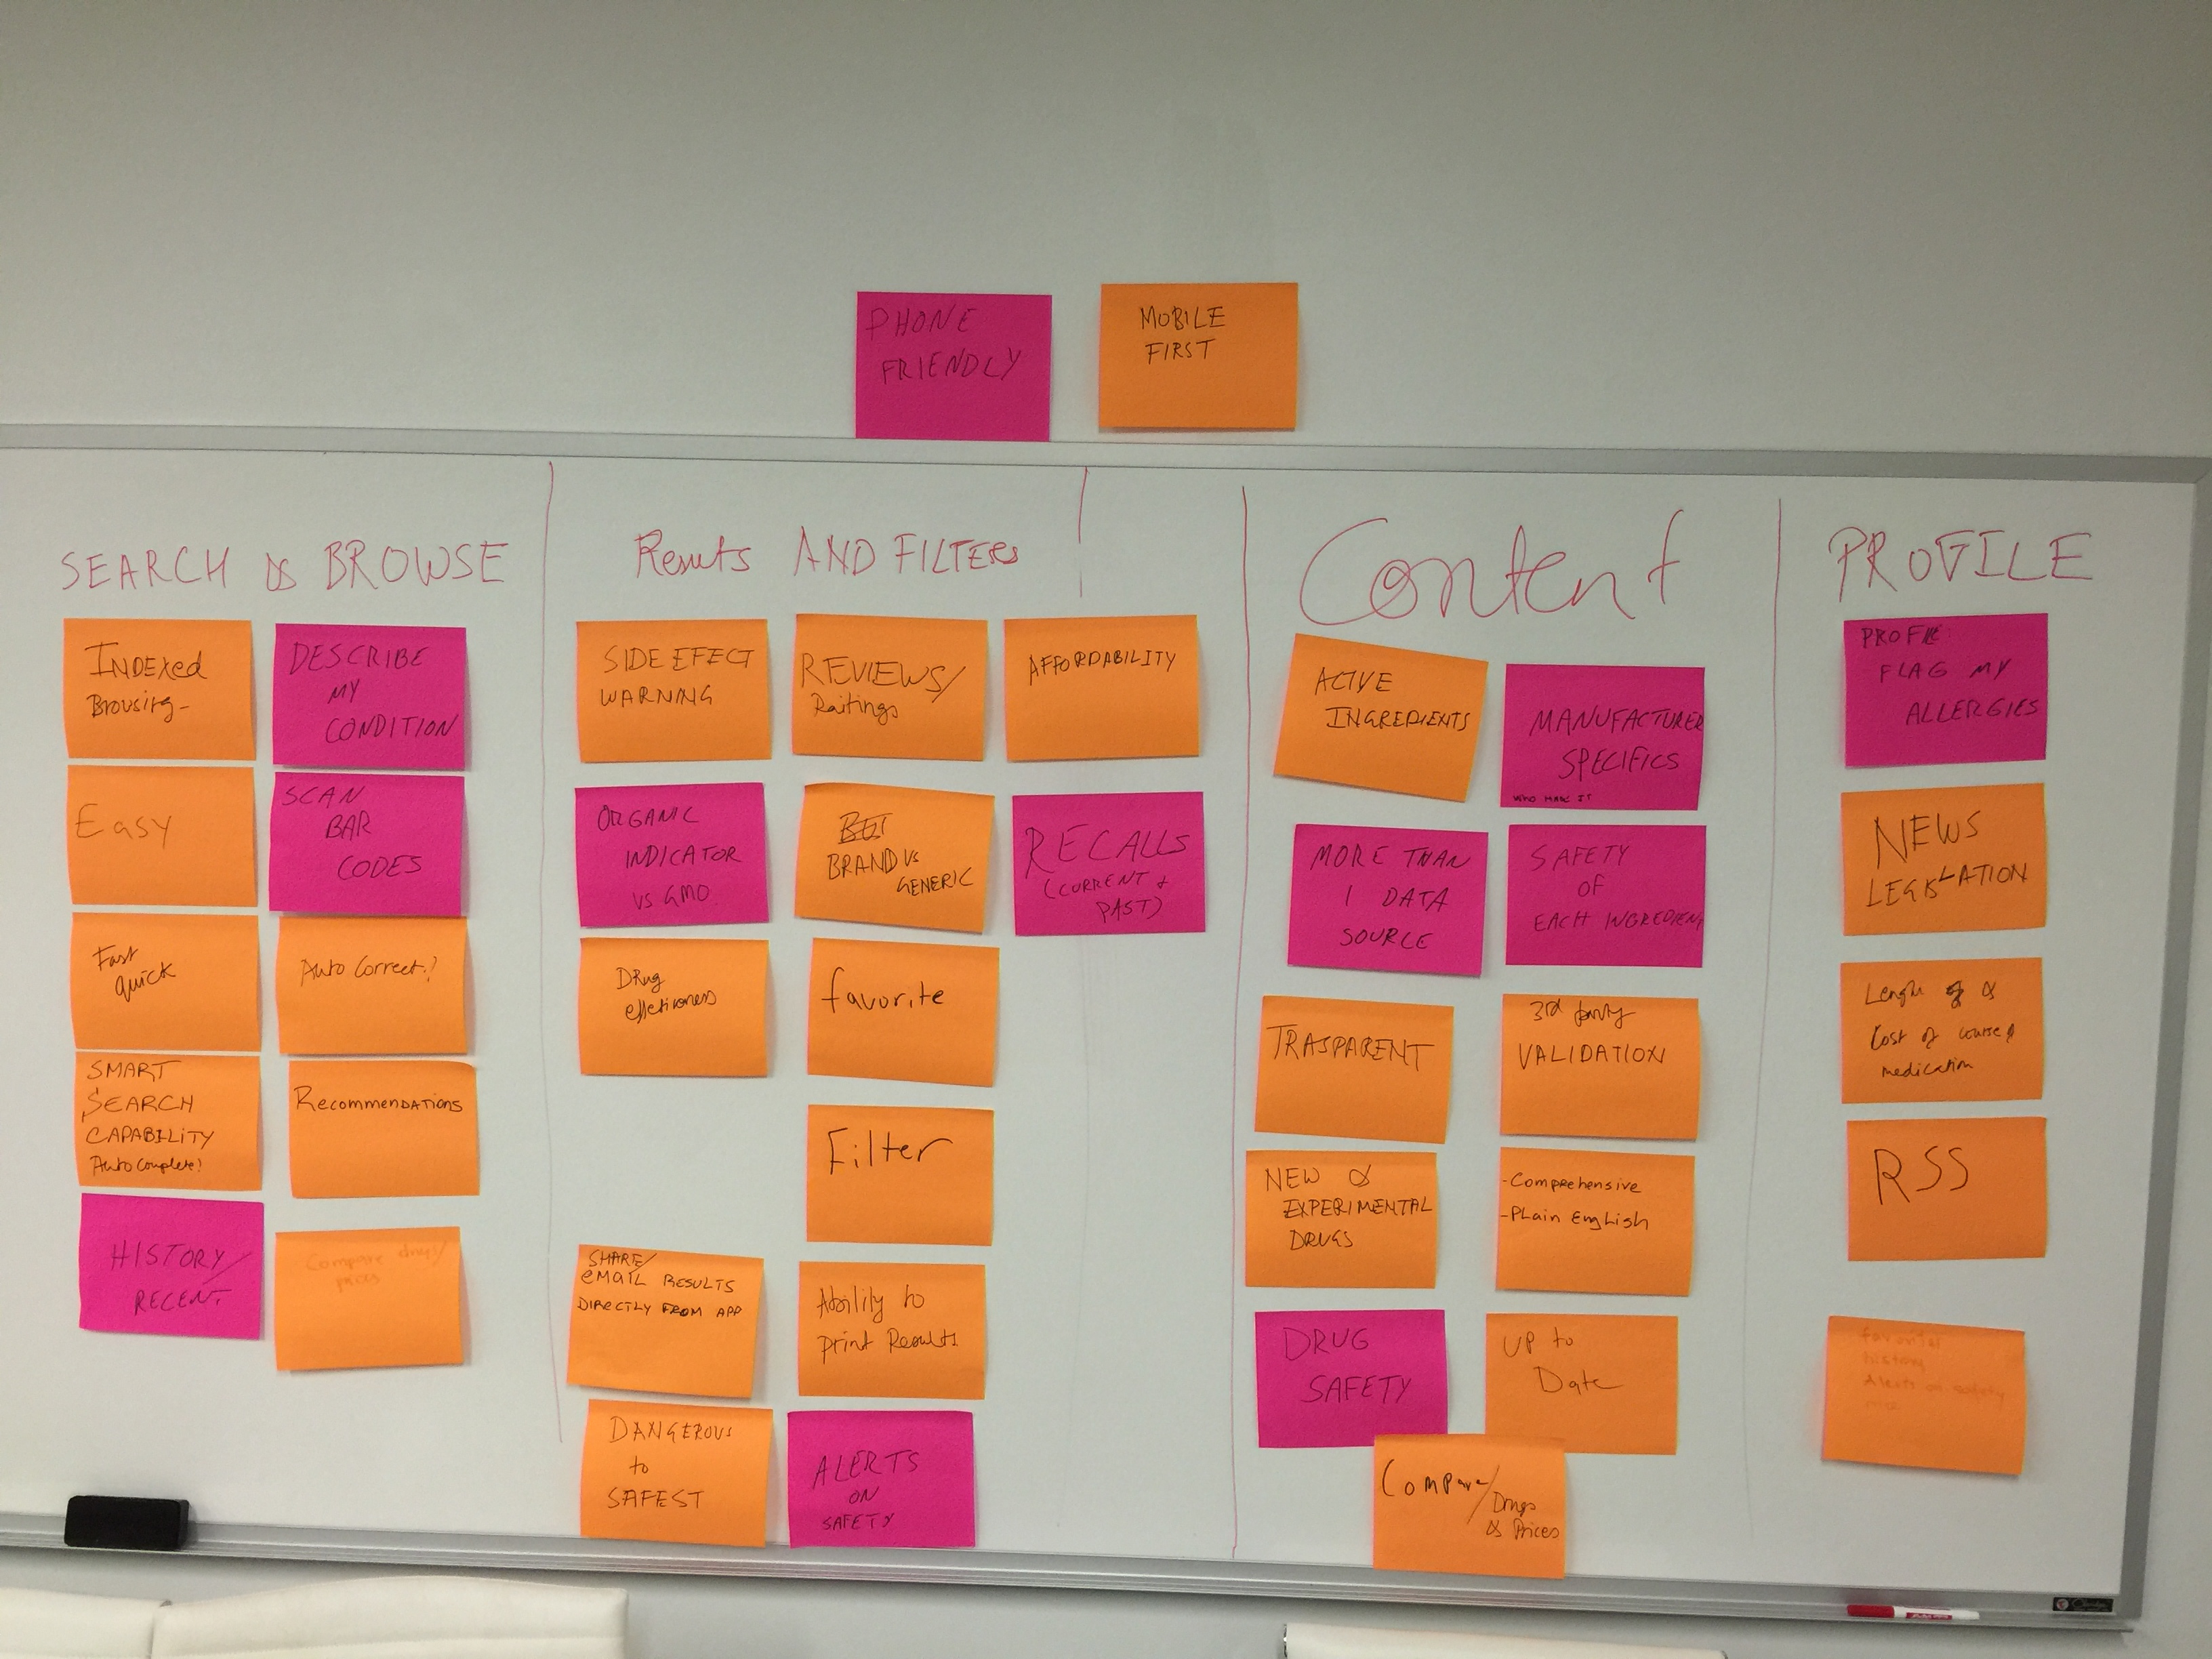 PHONE
FRIENDLY
MOBILE
FIRST
SEARCH & BROWSE
INDEXed
Browsing-
DESCRIBE
MY
CONDITION
Easy
SCAN
BAR
CODES
Fast
quick
Auto Correct?
SMART
SEARCH
CAPABILITY
Auto Complete!
RecommenDATIONS
HISTORY/
RECENT
Compare drugs/
prices
Results AND FILTERs
SIDE EFFECT
WARNING
REVIEWS/
Raitings
AFFORDABILITY
ORGANIC
INDICATOR
VS GMO
BRAND VS
GENERIC
RECALLS
(CURRENT +
PAST)
DRug
effectiveness
favorite
Filter
SHARE/
eMAIL RESULTS
DIRECTLY FROM APP
Ability to
print Results
DANGEROUS
to
SAFEST
ALERTS
ON
SAFETY
Content
ACTIVE
INGREDIENTS
MANUFACTURER
SPECIFICS
WHO MAKE IT
MORE THAN
1 DATA
SOURCE
SAFETY
OF
EACH INGREDIENT
TRASPARENT
3rd party
VALIDATION
NEW &
EXPERIMENTAL
DRUGS
-Comprehensive
-PLain EngLish
DRUG
SAFETY
UP to
Date
Compare/
Drugs
& Prices
PROFILE
PROFILE
FLAG MY
ALLERGIES
NEWS
LEGISLATION
Length &
Cost of course of
medication
RSS
favorites
history
Alerts on safety